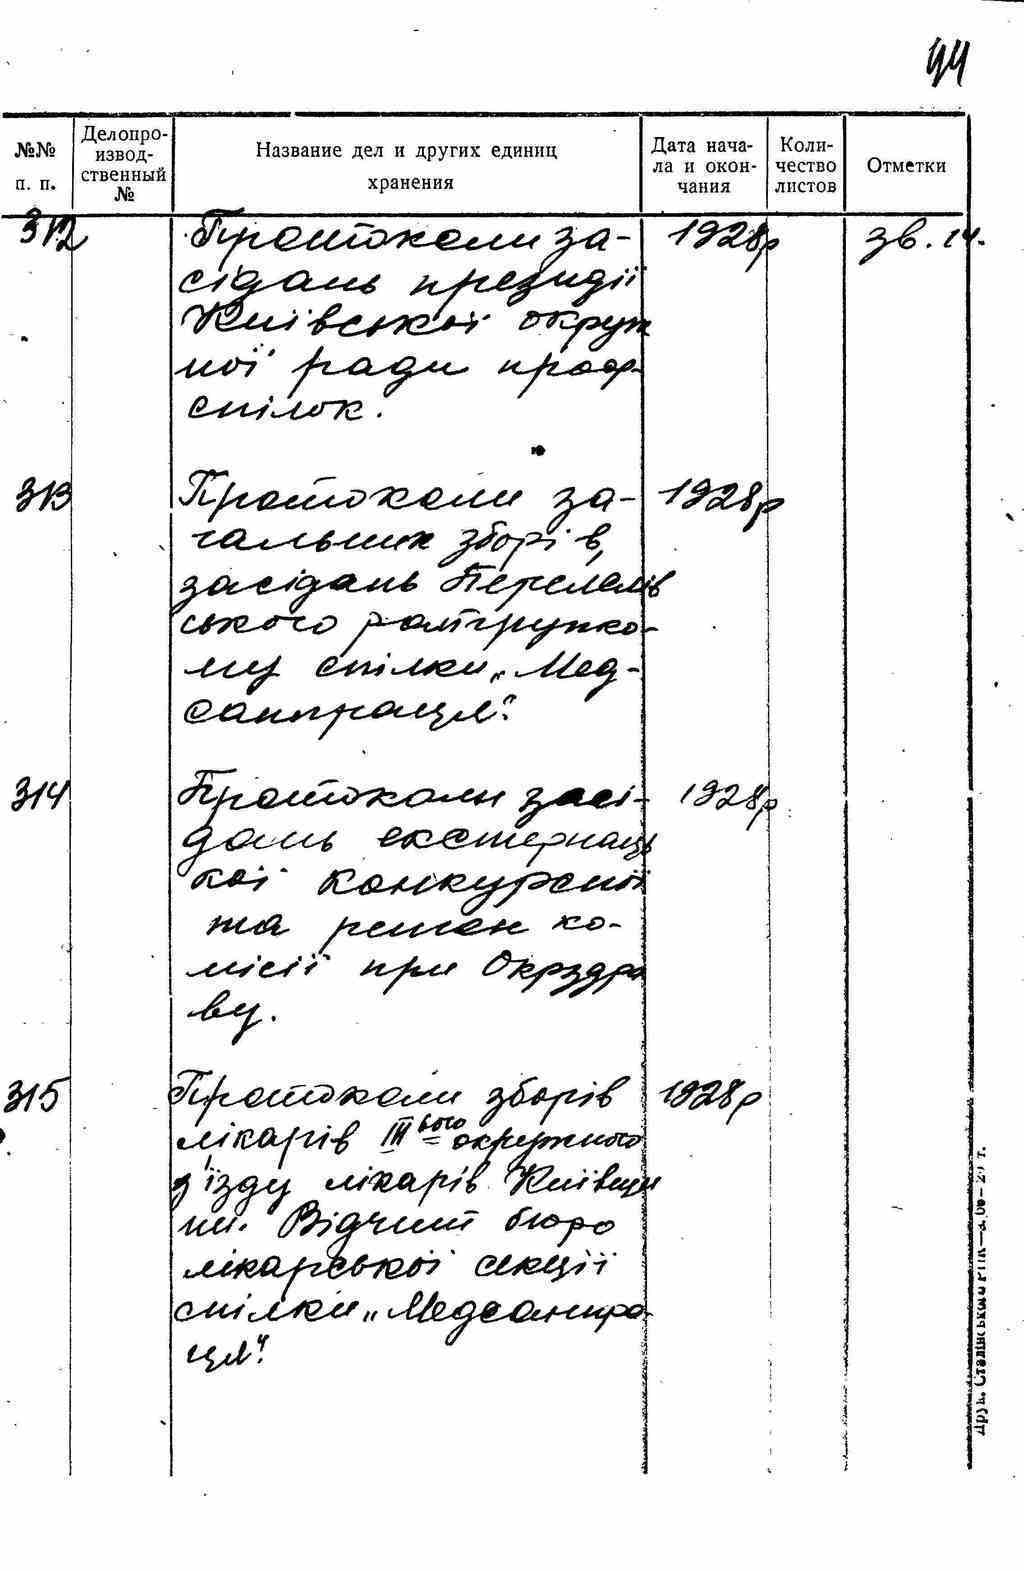 44
№№ п. п.
Делопроизводственный №
Название дел и других единиц хранения
Дата начала и окончания
Количество листов
Отметки
312 Протоколи за- 1928р зв. 14.
сідань президії
Київської окруж
ної ради проф-
спілок.
313 Протоколи за- 1928р
гальних зборів,
засідань
ського
му спілки „Мед-
санпраця".
314 Протоколи засі- 1928р
дань екстернаць
кої конкурсної
та ко-
місії при Окрздра
ву.
315 Протоколи зборів 1928р
лікарів III ього окружного
з'їзду лікарів Київщи
ни. Відчит бюро
лікарської секції
спілки „Медсанпра-
ця".
Друк. Сталінського РПК